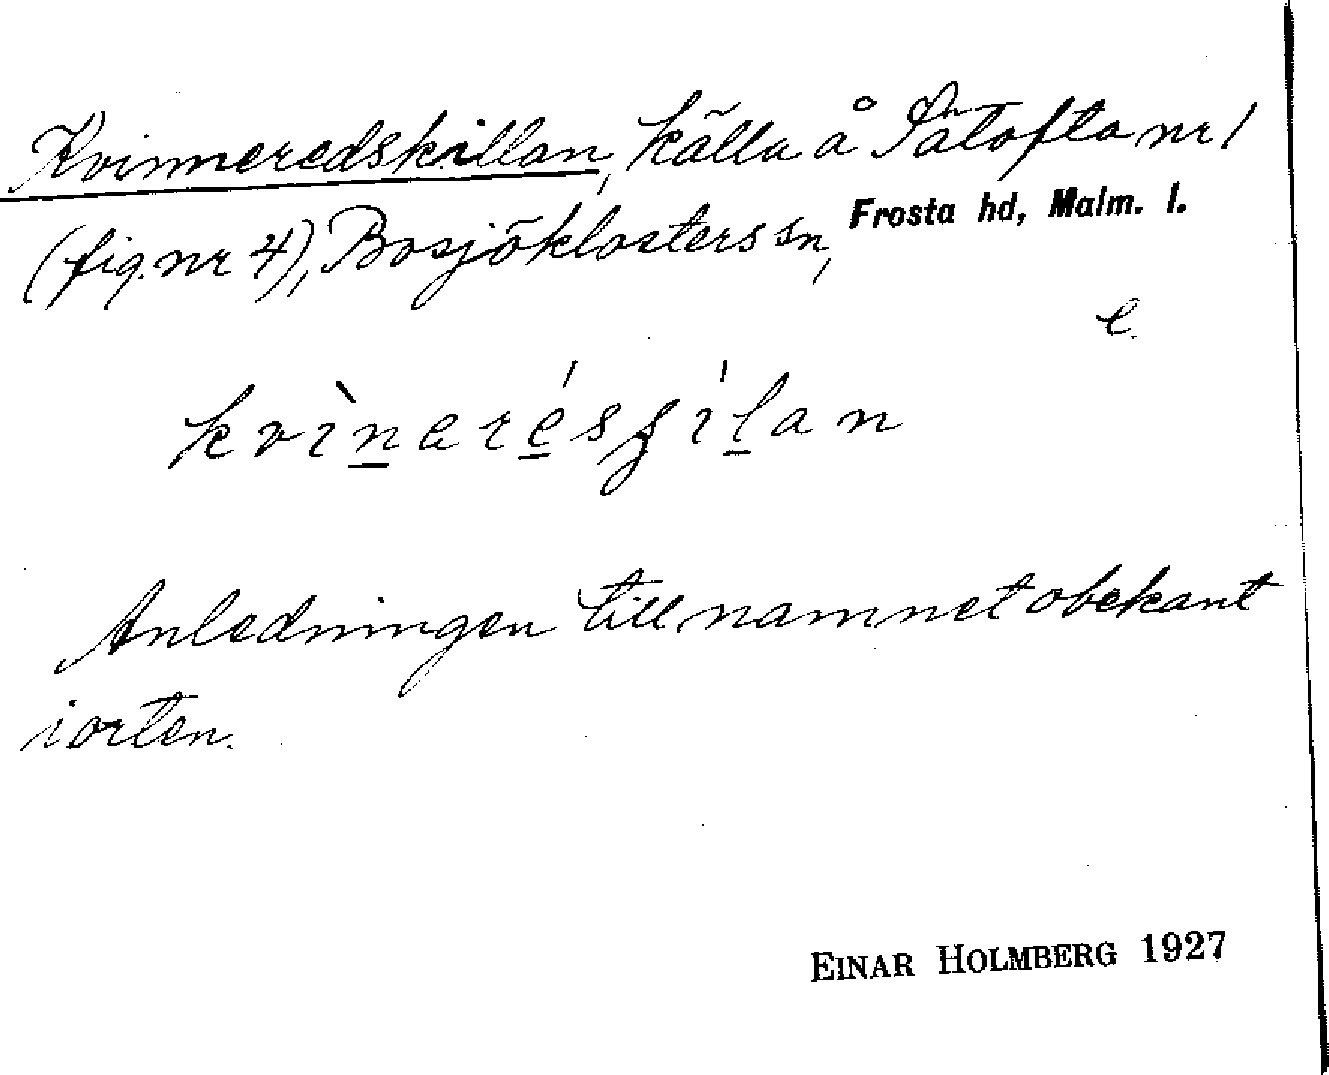 Kvinneredskillan, källa å Sätofta nr 1
(fig. nr 4), Bosjöklosters sn, Frosta hd, Malm. l.
e.
Anledningen till namnet obekant
i orten.
EINAR HOLMBERG 1927